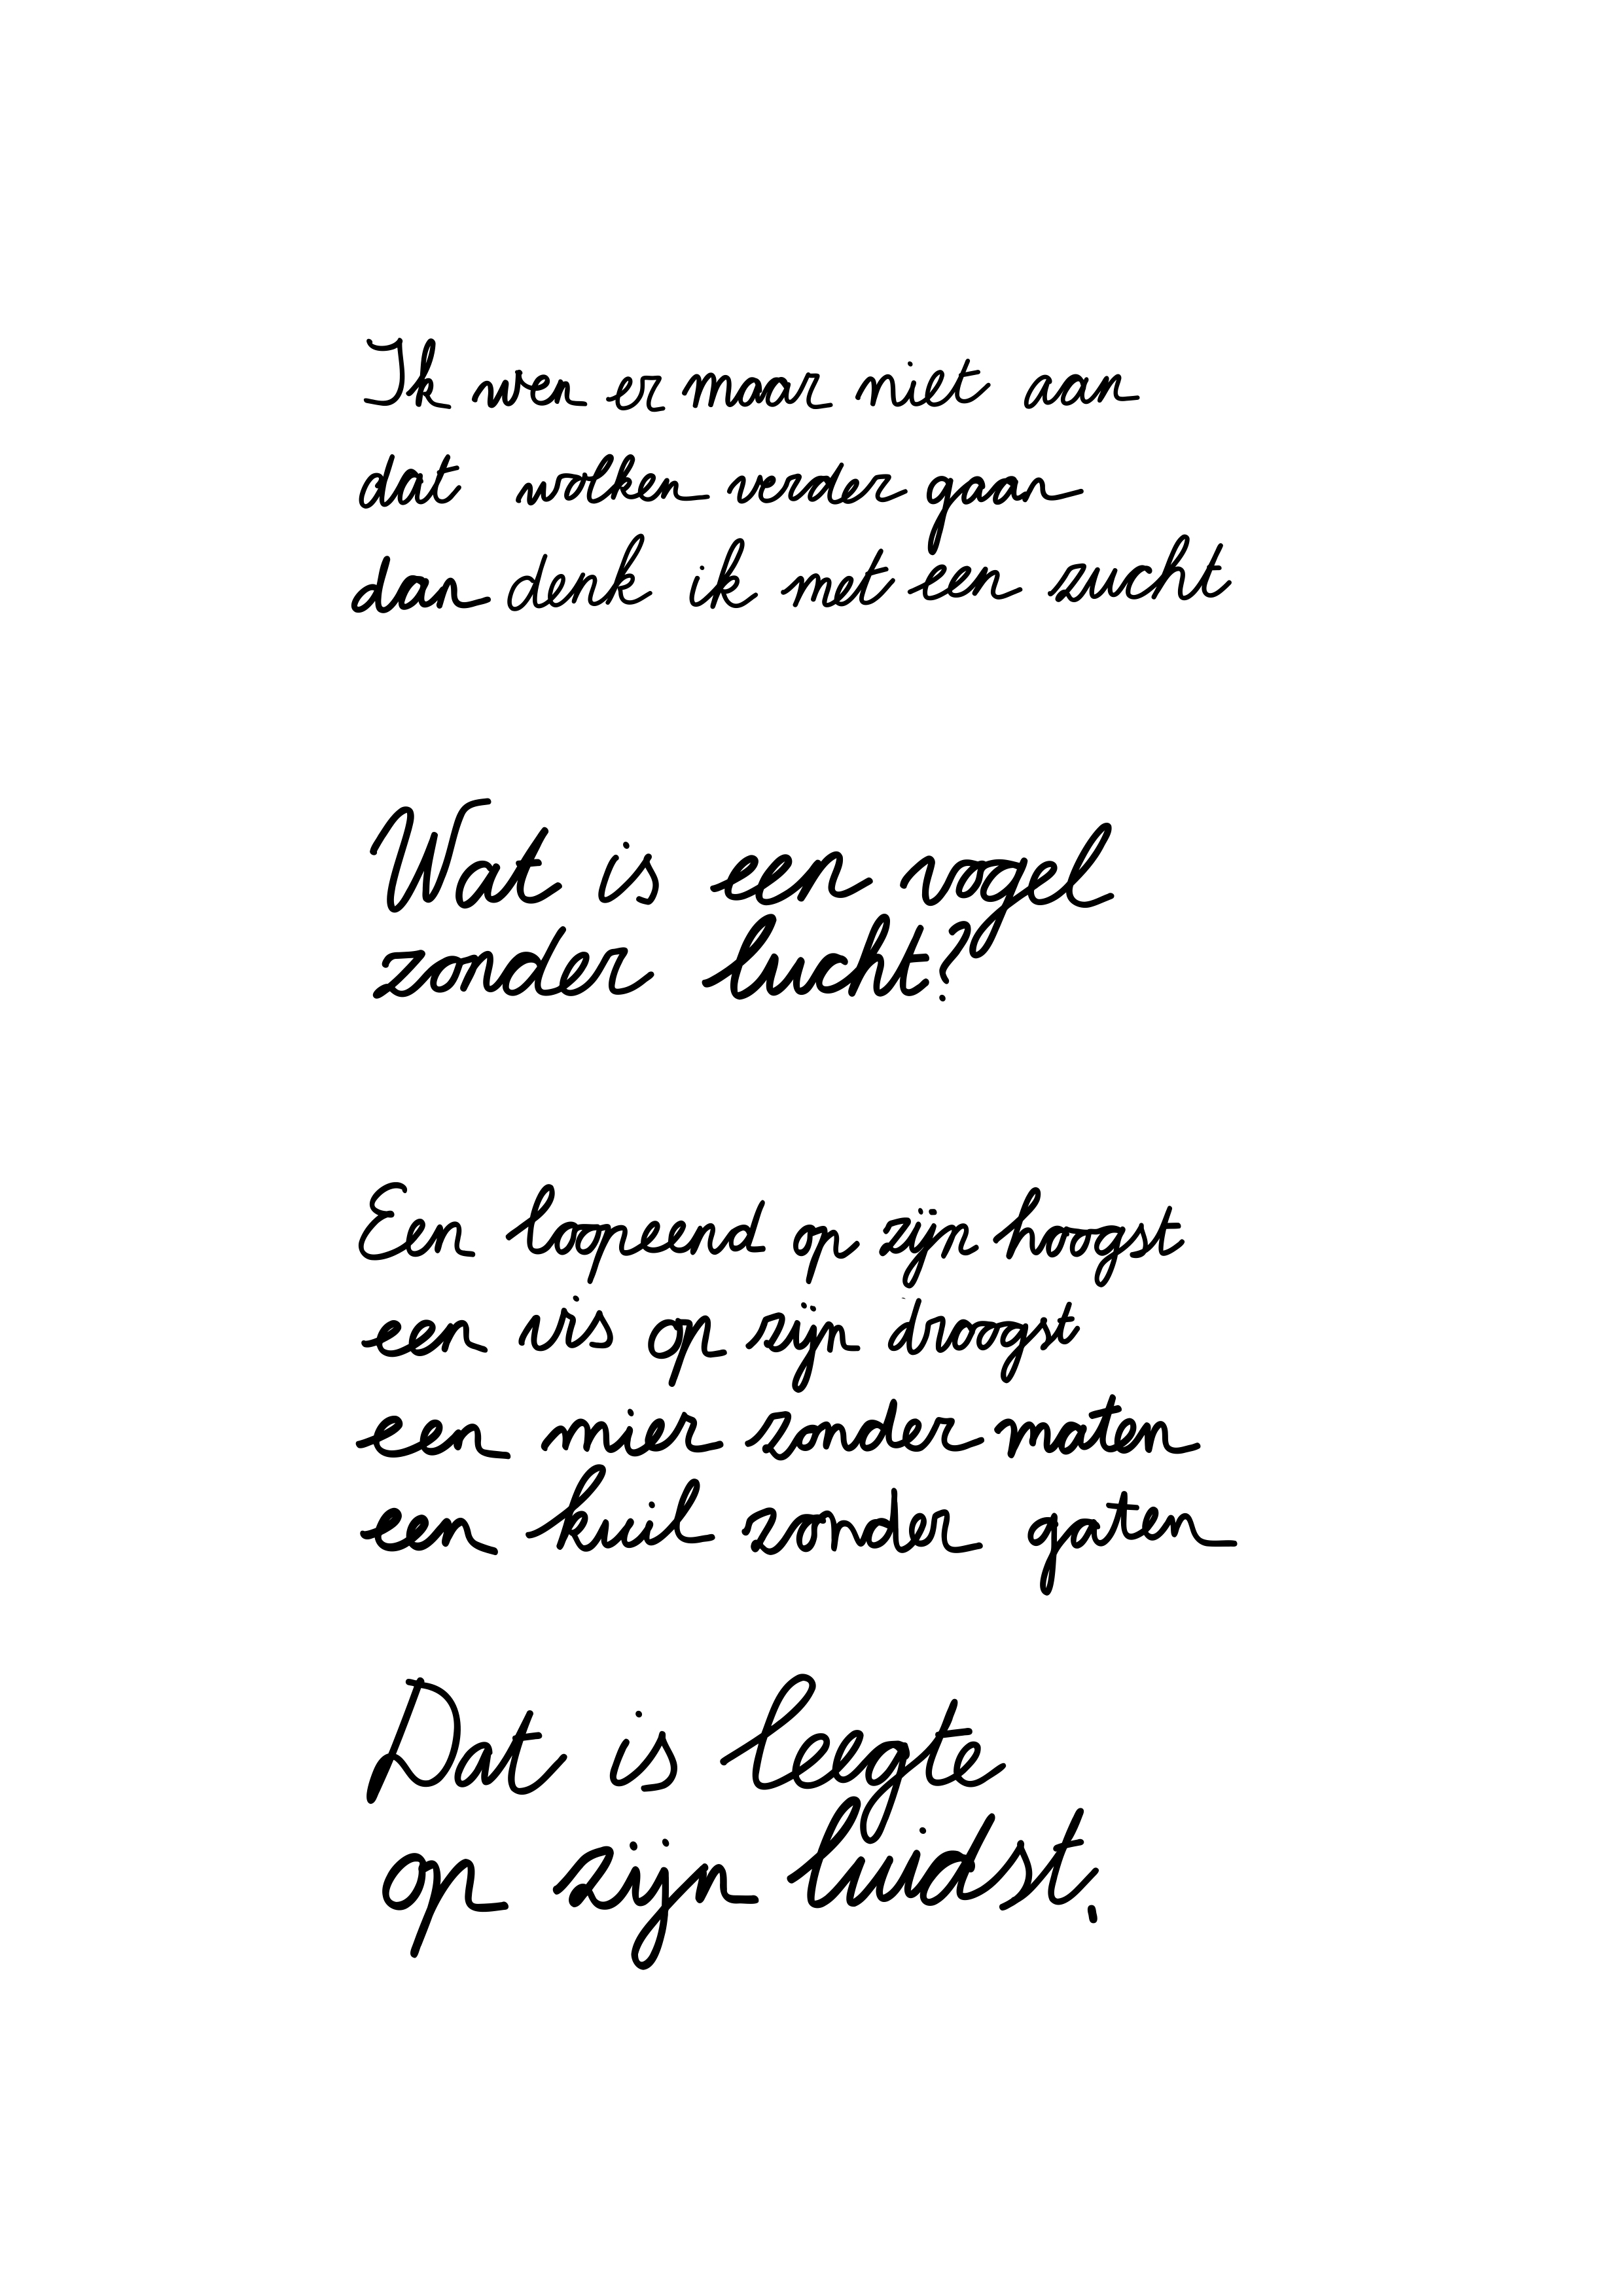 Ik wen er maar niet aan
dat wolken verder gaan
dan denk ik met een zucht
Wat is een vogel
zonder lucht?
Een loopeend op zijn hoogst
een vis op zijn droogst
een mier zonder maten
een kuil zonder gaten
Dat is leegte
op zijn luidst.